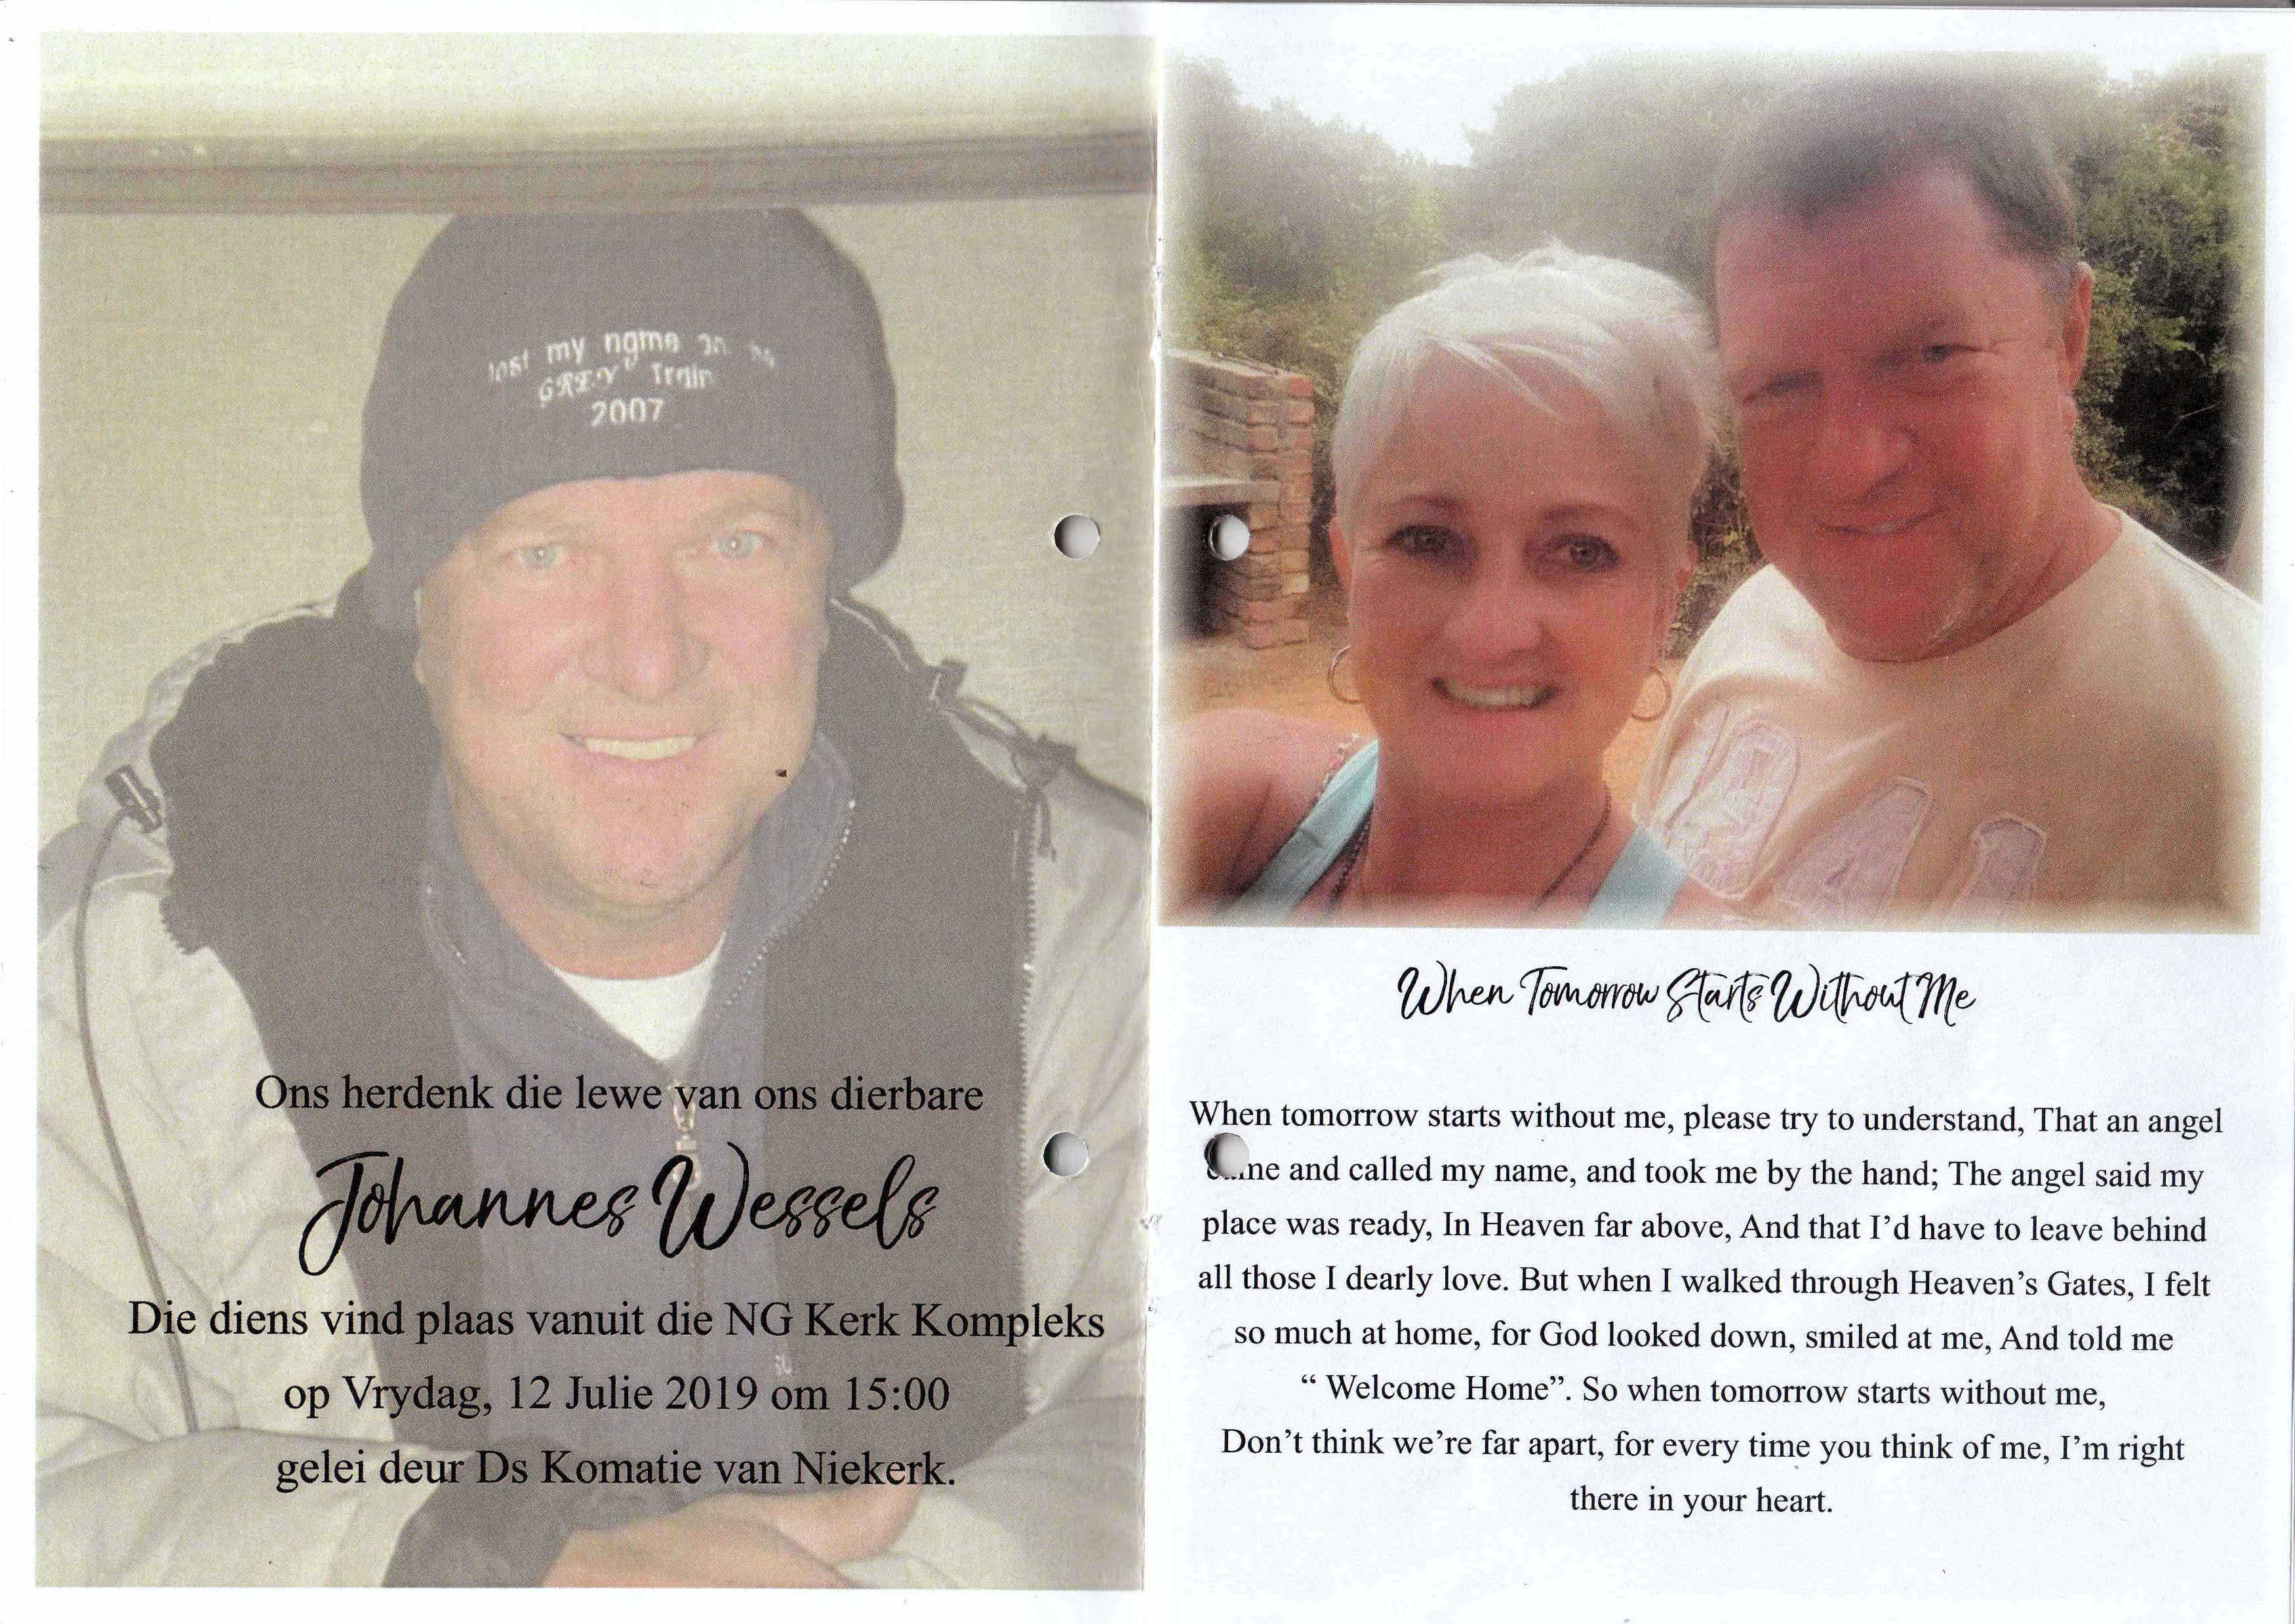 lost my name on
GREY Train
2007
Ons herdenk die lewe van ons dierbare
Johannes Wessels
Die diens vind plaas vanuit die NG Kerk Kompleks
op Vrydag, 12 Julie 2019 om 15:00
gelei deur Ds Komatie van Niekerk.
When Tomorrow Starts Without Me
When tomorrow starts without me, please try to understand, That an angel
came and called my name, and took me by the hand; The angel said my
place was ready, In Heaven far above, And that I’d have to leave behind
all those I dearly love. But when I walked through Heaven’s Gates, I felt
so much at home, for God looked down, smiled at me, And told me
“ Welcome Home”. So when tomorrow starts without me,
Don’t think we’re far apart, for every time you think of me, I’m right
there in your heart.